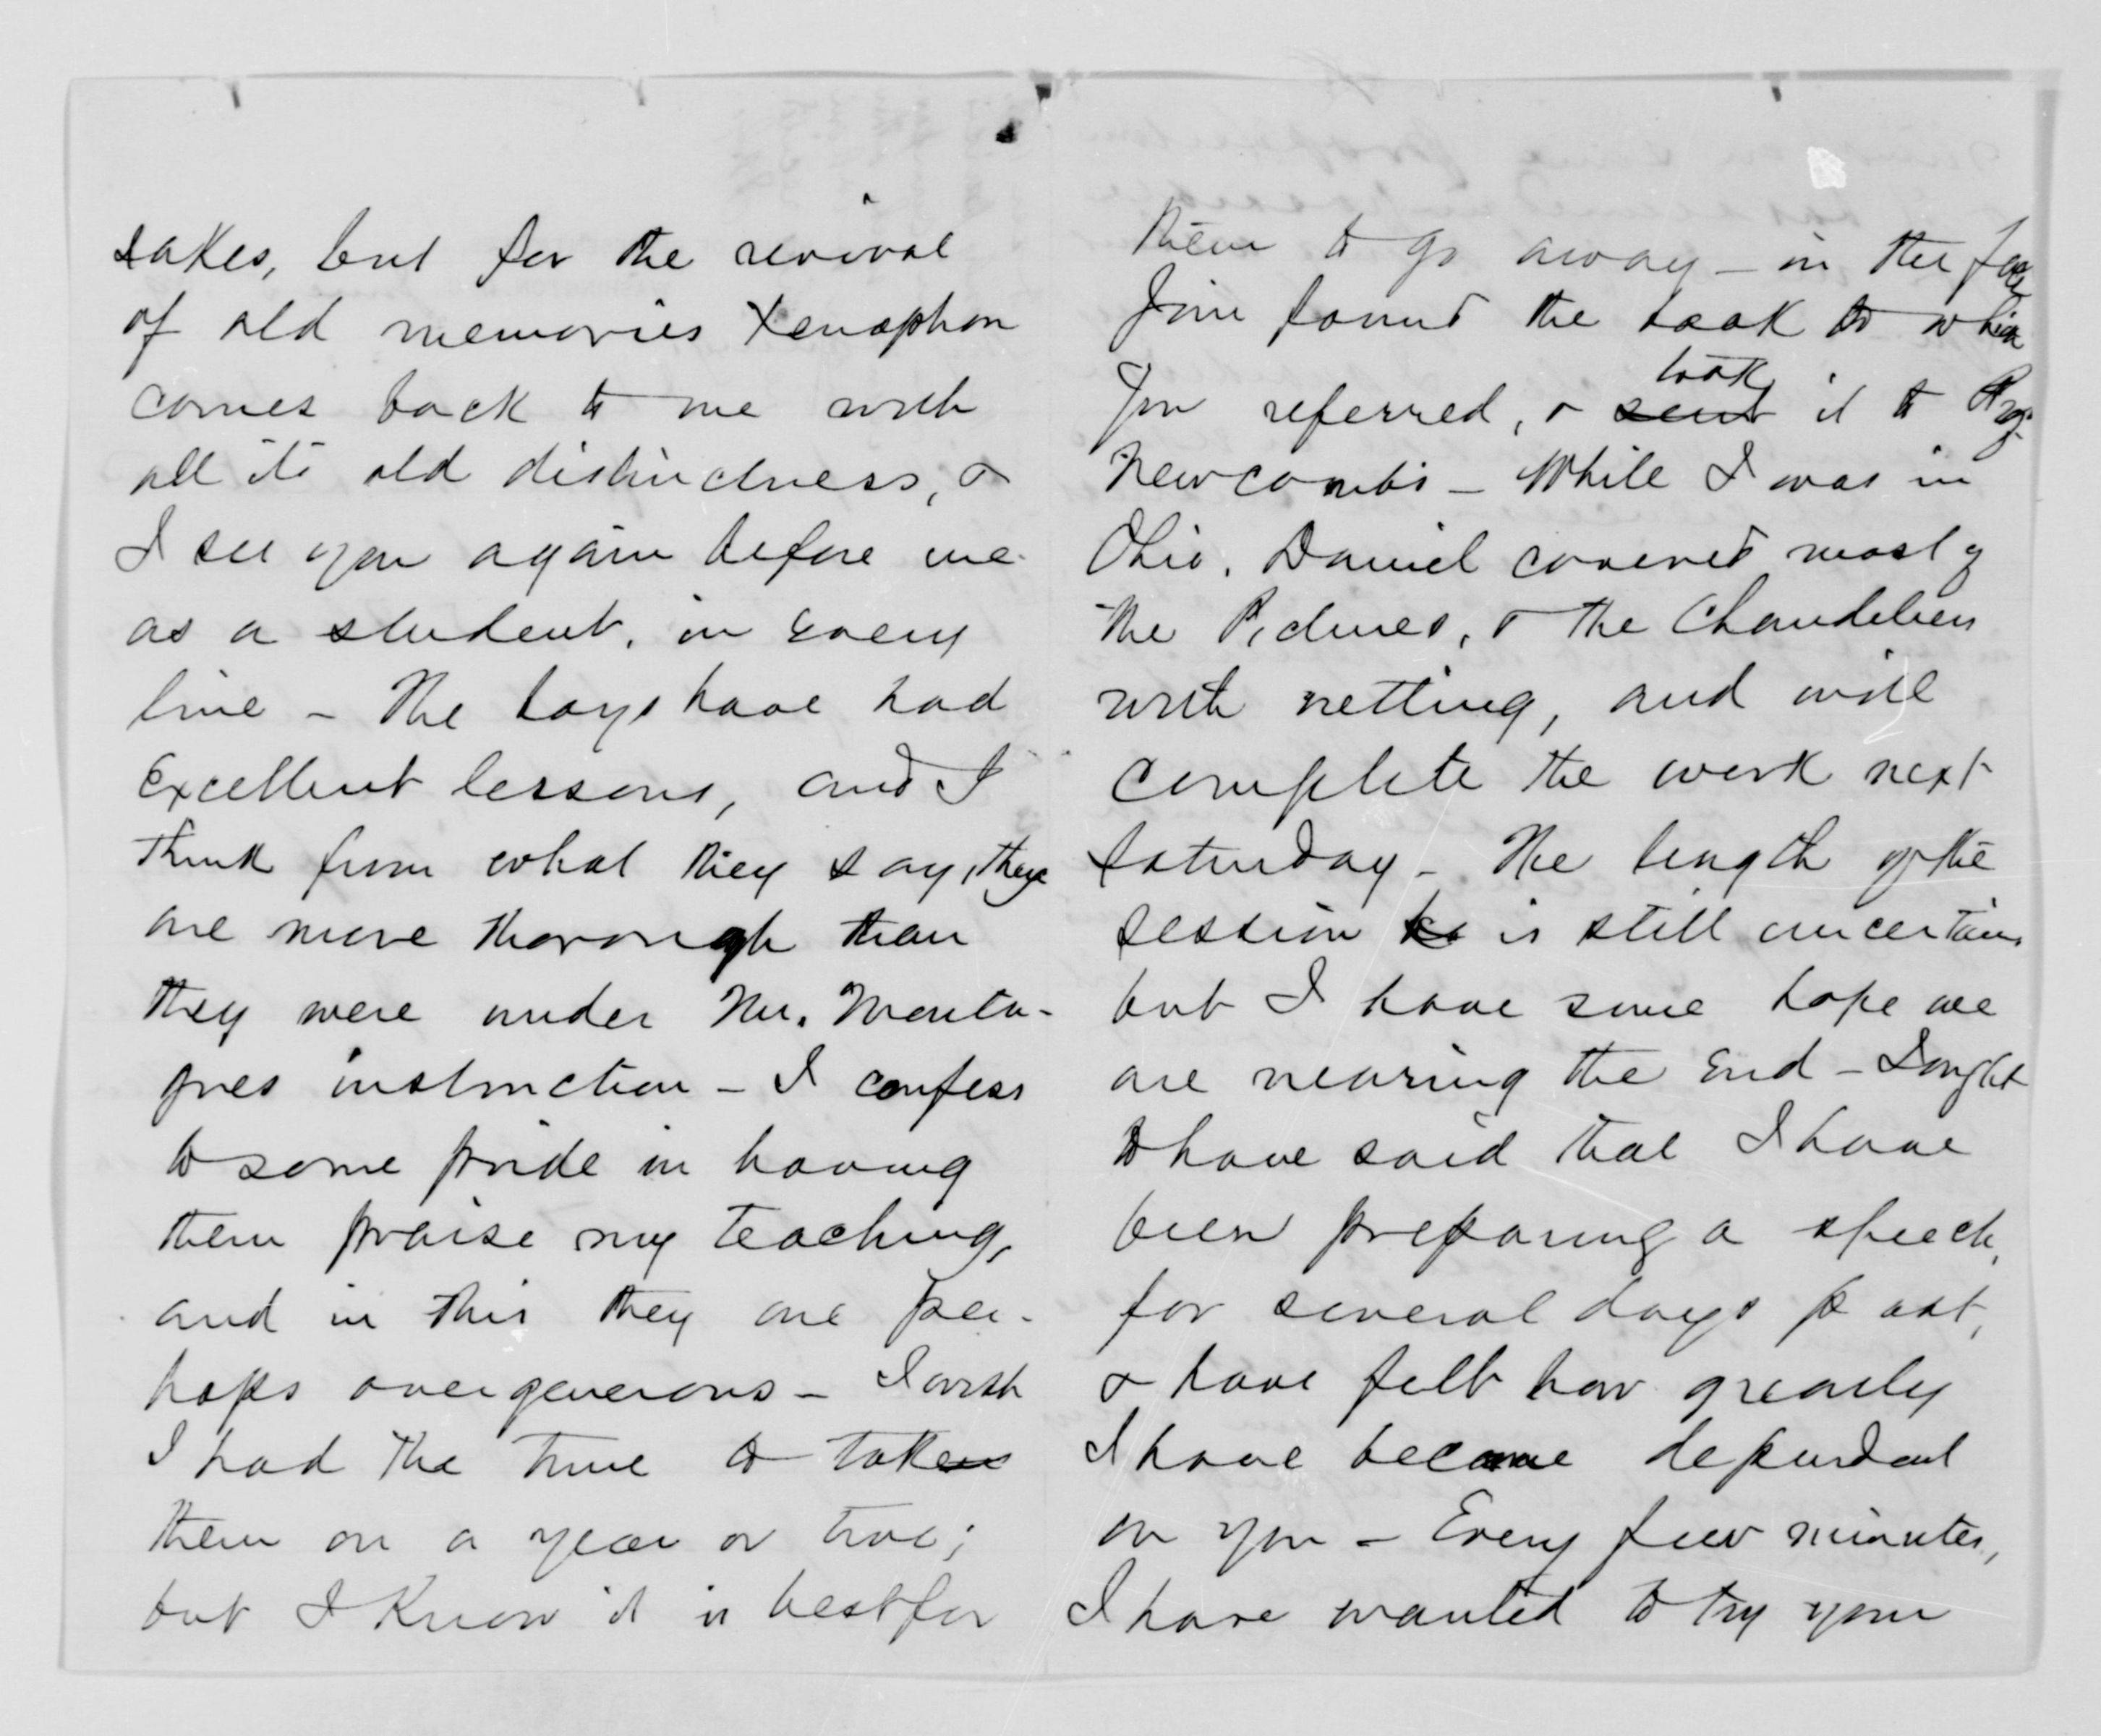 sakes, but for the revival
of old memories Xenophon
comes back to me with
all its old distinctness, &
I see you again before me
as a student, in every
line - The boys have had
excellent lessons, and I
think from what they say, they
are more thorough than
they were under Mr. Monta-
gues instruction - I confess
to some pride in having
them praise my teaching,
and in this they are per-
haps overgenerous - I wish
I had the time to taken
them on a year or two;
but I know it is best for
them to go away - in the fall
Jim found the book to which
you referred, & sent took it to Prof.
Newcombs - While I was in
Ohio, Daniel covered most of
the Pictures, & the Chandeliers
with netting, and will
complete the work next
Saturday - The length of the
session is still uncertain
but I have some hope we
are nearing the end - I ought
to have said that I have
been preparing a speech,
for several days past,
& have felt how greatly
I have become dependent
on you - Every few minutes,
I have wanted to try your